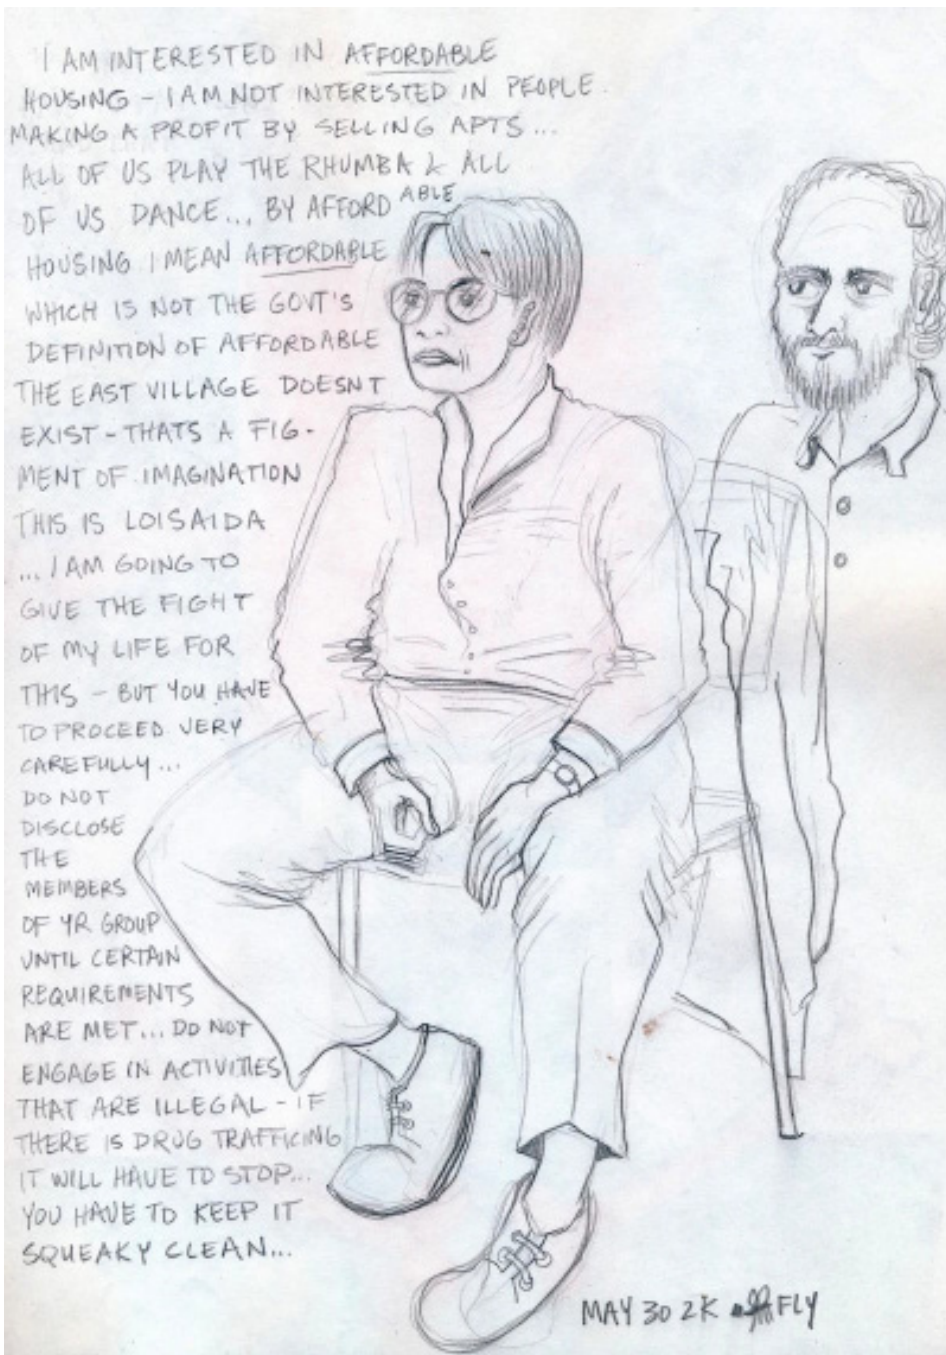 I AM INTERESTED IN AFFORDABLE
HOUSING - I AM NOT INTERESTED IN PEOPLE
MAKING A PROFIT BY SELLING APTS...
ALL OF US PLAY THE RHUMBA & ALL
OF US DANCE... BY AFFORDABLE
HOUSING I MEAN AFFORDABLE
WHICH IS NOT THE GOVT'S
DEFINITION OF AFFORDABLE
THE EAST VILLAGE DOESNT
EXIST - THATS A FIG-
MENT OF IMAGINATION
THIS IS LOISAIDA
... I AM GOING TO
GIVE THE FIGHT
OF MY LIFE FOR
THIS - BUT YOU HAVE
TO PROCEED VERY
CAREFULLY...
DO NOT
DISCLOSE
THE
MEMBERS
OF YR GROUP
UNTIL CERTAIN
REQUIREMENTS
ARE MET... DO NOT
ENGAGE IN ACTIVITIES
THAT ARE ILLEGAL - IF
THERE IS DRUG TRAFFICING
IT WILL HAVE TO STOP...
YOU HAVE TO KEEP IT
SQUEAKY CLEAN...
MAY 30 2K FLY